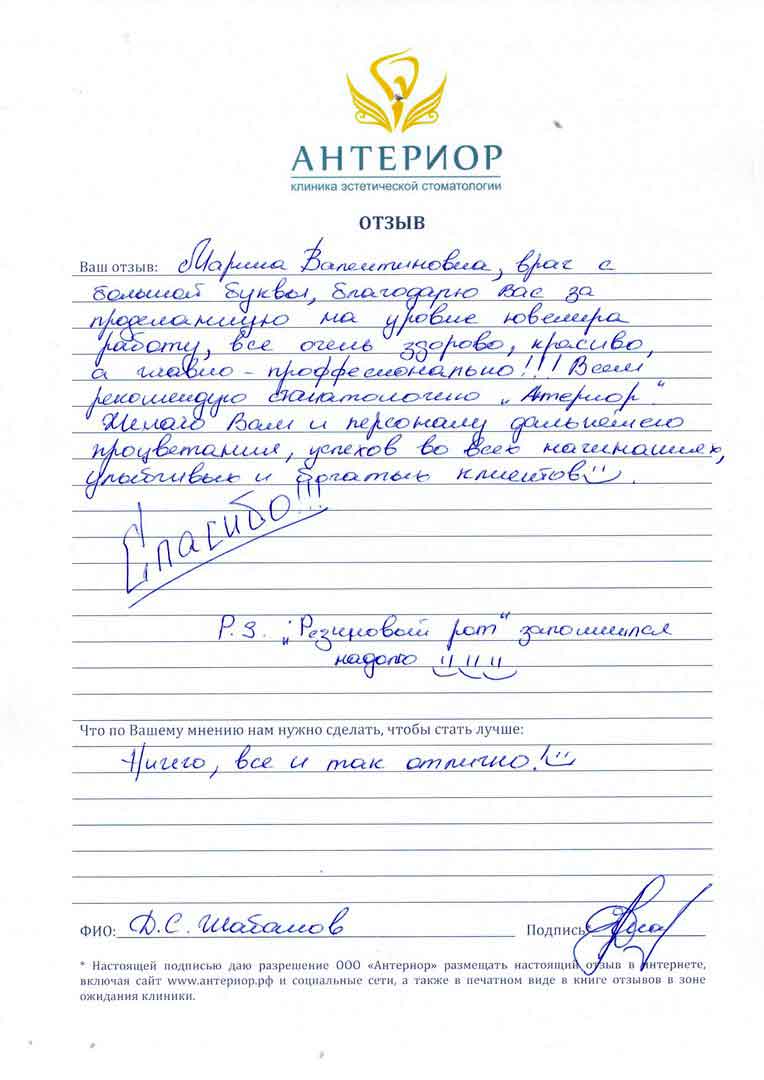 АНТЕРИОР
клиника эстетической стоматологии
ОТЗЫВ
Ваш отзыв: Марина Валентиновна, врач с
большой буквы, благодарю Вас за
проделанную на уровне ювелира
работу, все очень здорово, красиво,
а главно - проффесионально!!! Всем
рекомендую стаматологию „Атериор“.
Желаю Вам и персоналу дальнейшего
процветания, успехов во всех начинаниях,
улыбчивых и богатых клиентов
Спасибо!!!
P.S. „Резиновый рот“ запомнится
надолго
Что по Вашему мнению нам нужно сделать, чтобы стать лучше:
Ничего, все и так отлично!
ФИО: Д.С. Шабанов Подпись
* Настоящей подписью даю разрешение ООО «Антериор» размещать настоящий отзыв в интернете,
включая сайт www.антериор.рф и социальные сети, а также в печатном виде в книге отзывов в зоне
ожидания клиники.